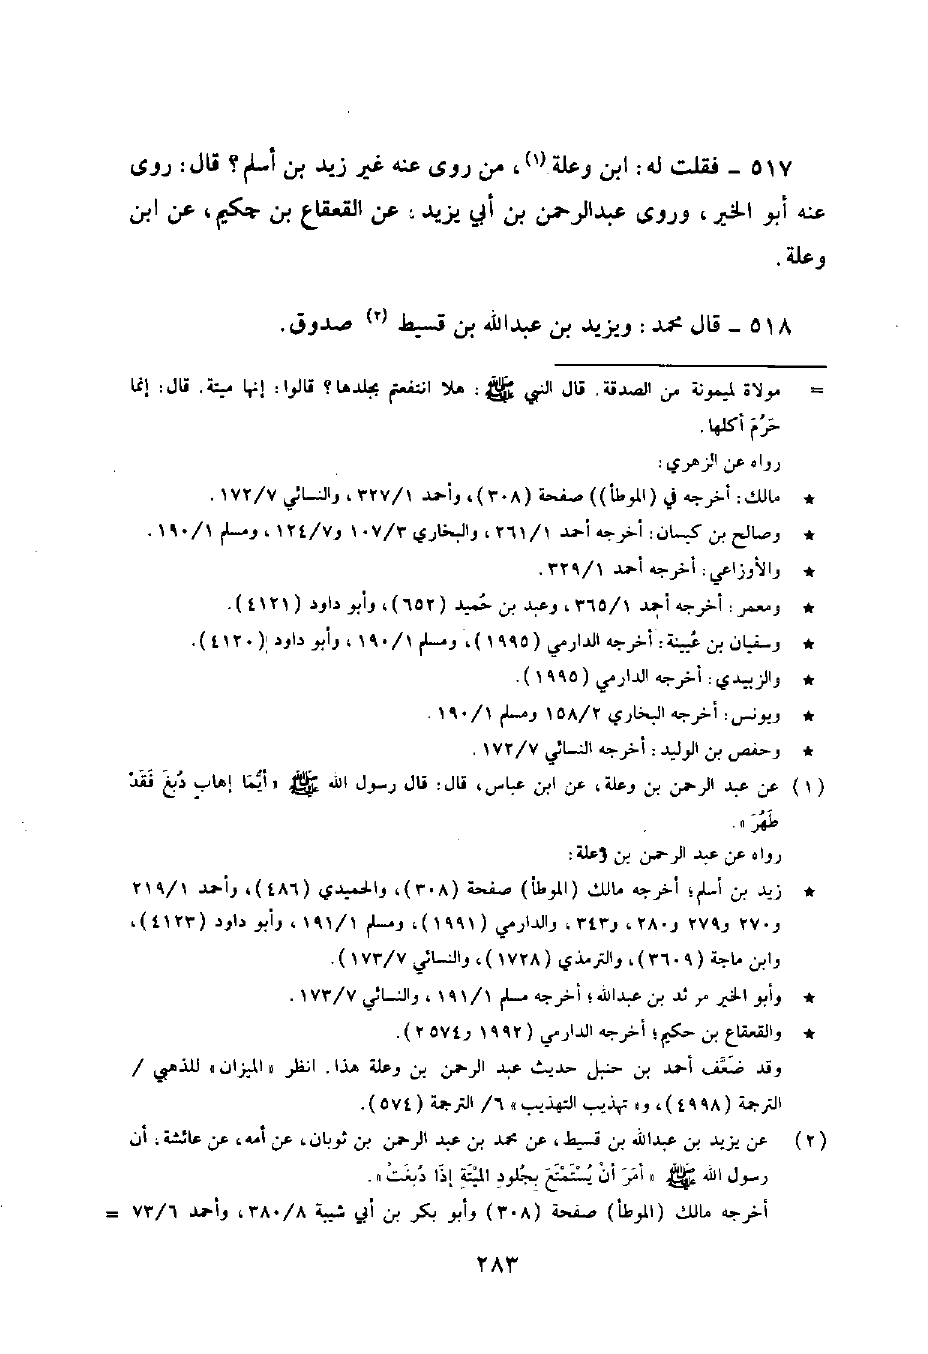 ٥١٧ ـ فقلت له : ابن وعلة (١) ، من روى عنه غير زيد بن أسلم ؟ قال : روى
عنه أبو الخير ، وروى عبدالرحمن بن أبي يزيد : عن القعقاع بن حكيم ، عن ابن
وعلة .
٥١٨ ـ قال محمد : ويزيد بن عبدالله بن قسيط (٢) صدوق .
= مولاة لميمونة من الصدقة. قال النبي ﷺ : هلا انتفعتم بجلدها؟ قالوا: إنها ميتة. قال: إنما
حَرُمَ أكلها .
رواه عن الزهري :
★ مالك : أخرجه في (الموطأ)) صفحة (٣٠٨)، وأحمد ٣٢٧/١ ، والنسائي ١٧٢/٧ .
★ وصالح بن كيسان : أخرجه أحمد ٢٦١/١ ، والبخاري ١٠٧/٣ و١٢٤/٧ ، ومسلم ١٩٠/١ .
★ والأوزاعي : أخرجه أحمد ٣٢٩/١ .
★ ومعمر : أخرجه أحمد ٣٦٥/١ ، وعبد بن حُميد (٦٥٢)، وأبو داود (٤١٢١).
★ وسفيان بن عُيينة : أخرجه الدارمي (١٩٩٥)، ومسلم ١٩٠/١ ، وأبو داود (٤١٢٠).
★ والزبيدي : أخرجه الدارمي (١٩٩٥).
★ ويونس : أخرجه البخاري ١٥٨/٢ ومسلم ١٩٠/١ .
★ وحفص بن الوليد : أخرجه النسائي ١٧٢/٧ .
(١) عن عبد الرحمن بن وعلة، عن ابن عباس، قال: قال رسول الله ﷺ «أيُّمَا إهابٍ دُبِغَ فَقَدْ
طَهُرَ».
رواه عن عبد الرحمن بن وعلة :
★ زيد بن أسلم ؛ أخرجه مالك (الموطأ) صفحة (٣٠٨)، والحميدي (٤٨٦)، وأحمد ٢١٩/١
و٢٧٠ و٢٧٩ و٢٨٠ ، و٣٤٣ ، والدارمي (١٩٩١)، ومسلم ١٩١/١ ، وأبو داود (٤١٢٣)،
وابن ماجة (٣٦٠٩)، والترمذي (١٧٢٨)، والنسائي ١٧٣/٧).
★ وأبو الخير مرثد بن عبدالله ؛ أخرجه مسلم ١٩١/١ ، والنسائي ١٧٣/٧ .
★ والقعقاع بن حكيم ؛ أخرجه الدارمي (١٩٩٢ و٢٥٧٤).
وقد ضَعَّف أحمد بن حنبل حديث عبد الرحمن بن وعلة هذا. انظر «الميزان» للذهبي /
الترجمة (٤٩٩٨)، و«تهذيب التهذيب» ٦/ الترجمة (٥٧٤).
(٢) عن يزيد بن عبدالله بن قسيط، عن محمد بن عبد الرحمن بن ثوبان، عن أمه، عن عائشة، أن
رسول الله ﷺ «أمَرَ أنْ يُسْتَمْتَعَ بِجُلودِ الميْتَةِ إذَا دُبغَتْ».
أخرجه مالك (الموطأ) صفحة (٣٠٨) وأبو بكر بن أبي شيبة ٣٨٠/٨ ، وأحمد ٧٣/٦ =
٢٨٣